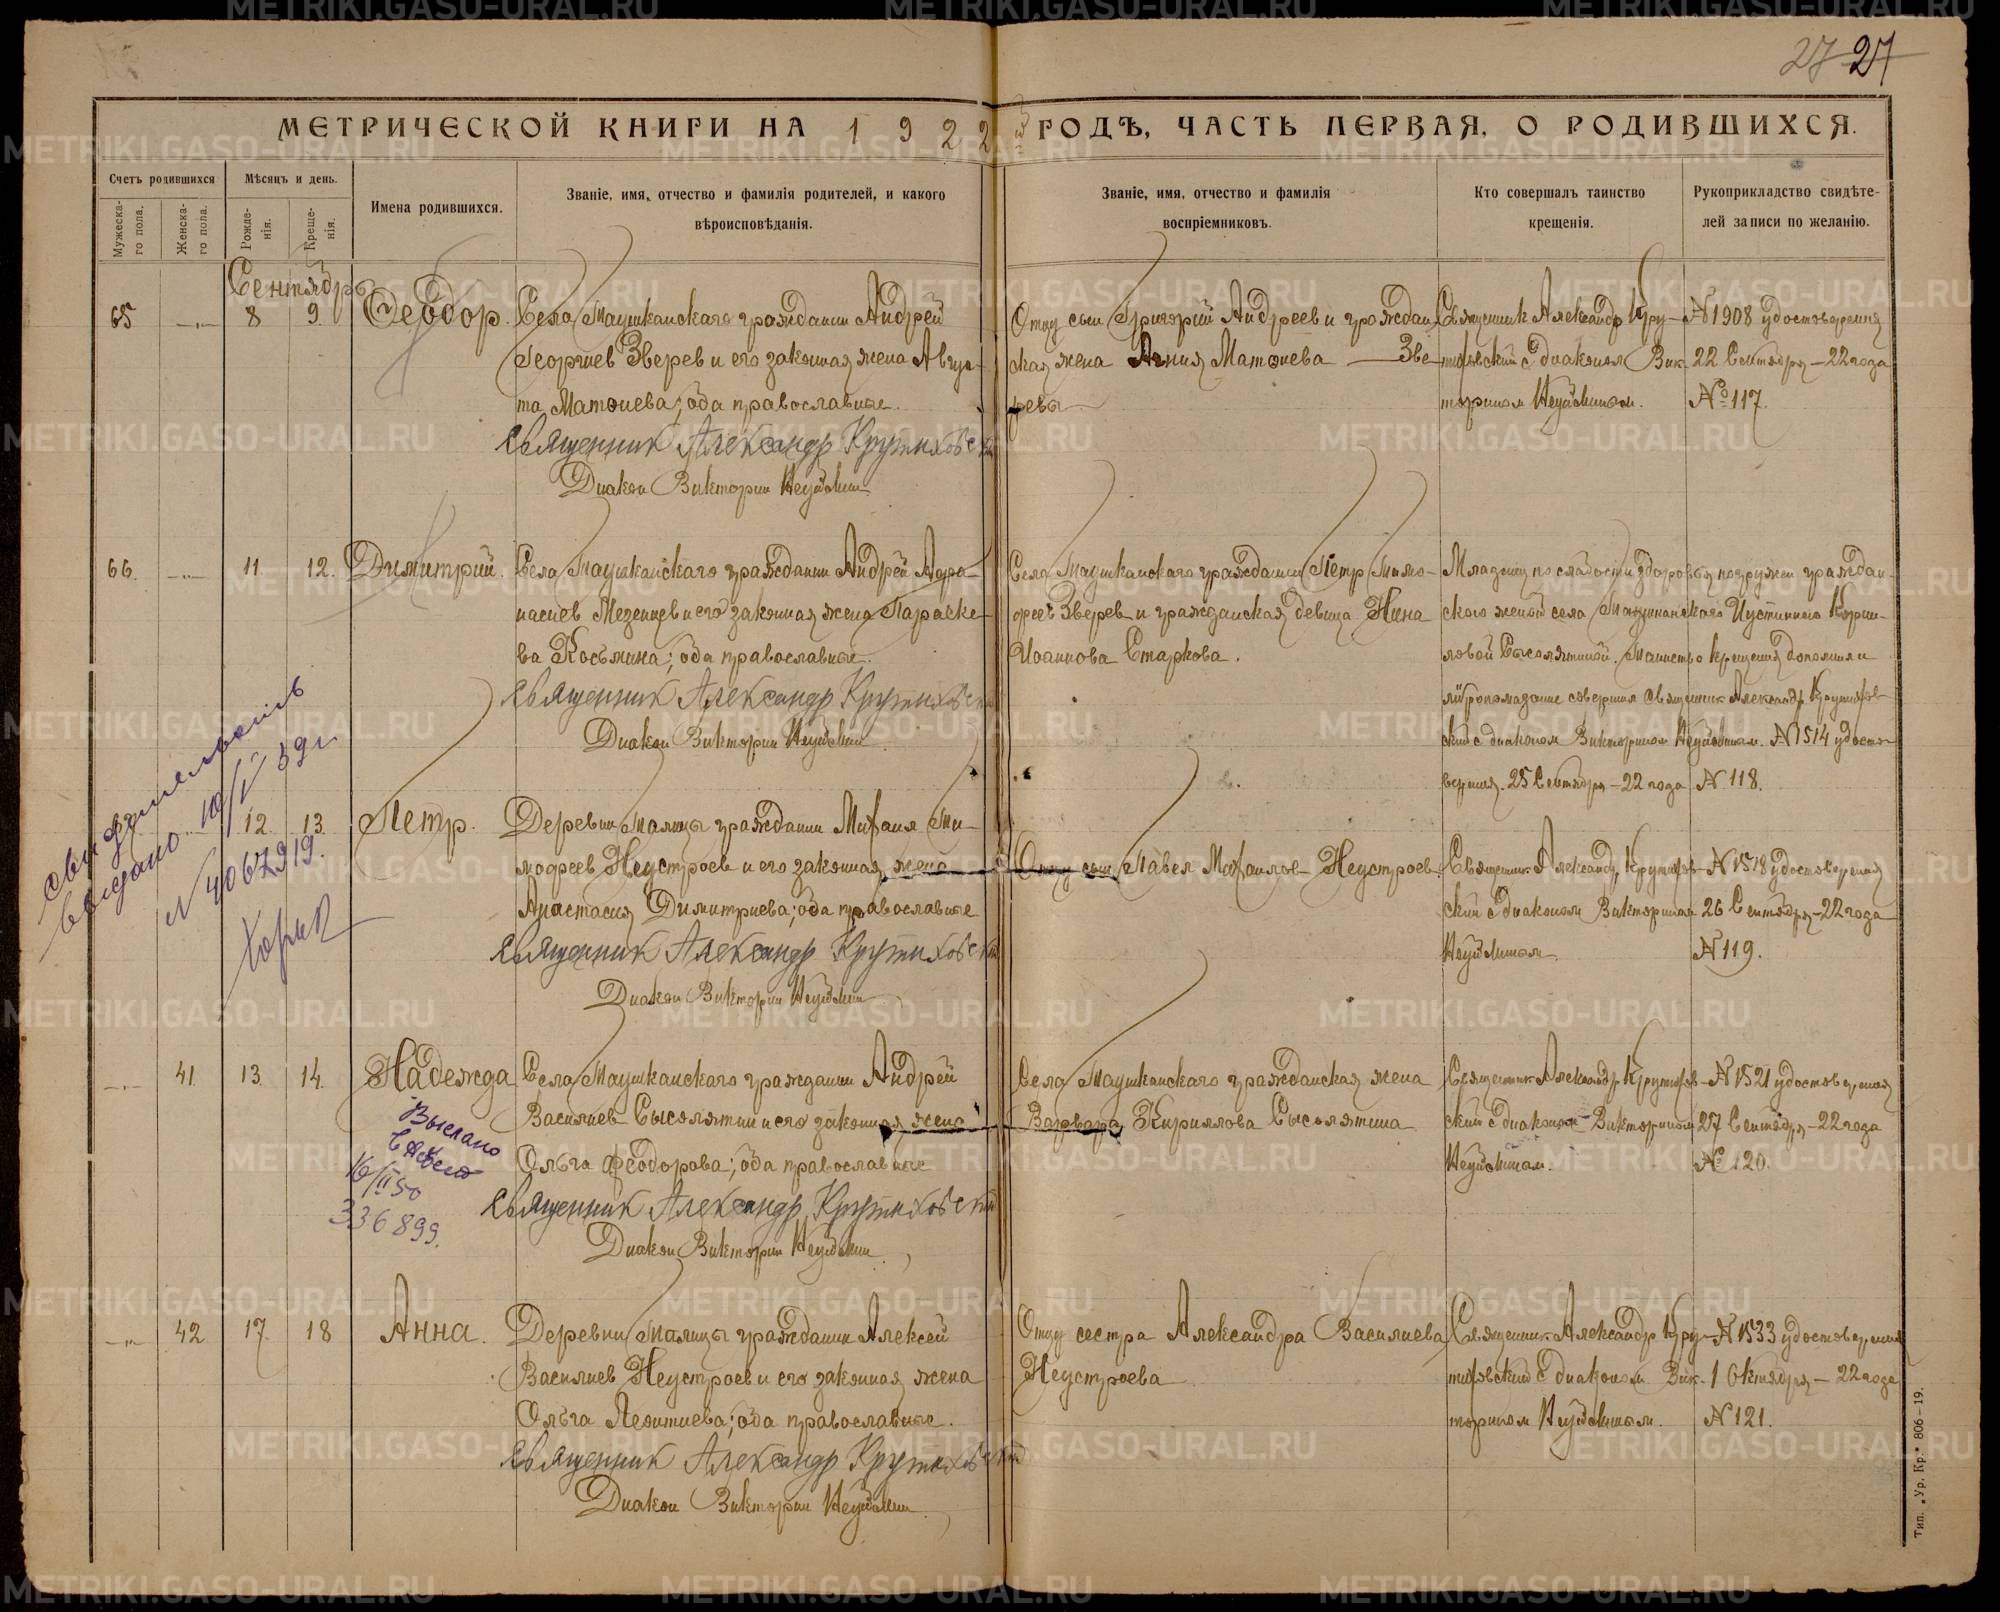 27 27
МЕТРИЧЕСКОЙ КНИГИ НА 1922й ГОДЪ, ЧАСТЬ ПЕРВАЯ, О РОДИВШИХСЯ.
Счетъ родившихся
Мѣсяцъ и день.
Мужеска-
го пола.
Женска-
го пола.
Рожде-
нія.
Креще-
нія.
Имена родившихся.
Званіе, имя, отчество и фамилія родителей, и какого
вѣроисповѣданія.
Званіе, имя, отчество и фамилія
воспріемниковъ.
Кто совершалъ таинство
крещенія.
Рукоприкладство свидѣте-
лей записи по желанію.
Сентябрь
65 8 9 Феодор.
Села Таушканскаго гражданин Андрей
Георгиев Зверев и его законная жена Авгус-
та Матфиева; оба православные.
Священник Александр Крутиховски
Диакон Викторин Неуймин
Отцу сын Григорий Андреев и граждан-
ская жена Агния Матфиева — Зве-
ревы
Священник Александр Кру-
тиховский с диаконом Вик-
торином Неуйминым.
№ 1908 удостоверения
22 Сентября – 22 года
№ 117.
66. 11 12. Димитрий.
Села Таушканскаго гражданин Андрей Афа-
насиев Мезенцев и его законная жена Параске-
ва Косьмина; оба православные.
Священник Александр Крутиховски
Диакон Викторин Неуймин
Села Таушканскаго гражданин Петр Тимо-
феев Зверев и гражданская девица Нина
Иоаннова Старкова.
Младенец по слабости здоровья погружен граждан-
ского женой села Таушканскаго Иустиниею Кирил-
ловой Сысолятиной. Таинство крещения дополнил и
миропомазание совершил священник Александр Крутихов-
ский с диаконом Викторином Неуйминым. № 1514 удосто-
верения. 25 Сентября – 22 года № 118.
свидетельство
выдано 10/V 39 г.
№ 4067919.
12. 13. Петр.
Деревни Талицы гражданин Михаил Ти-
мофеев Неустроев и его законная жена
Анастасия Димитриева; оба православные
Священник Александр Крутиховски
Диакон Викторин Неуймин
Отцу сын Павел Михаилов Неустроев.
Священник Александр Крутихов-
ский с диаконом Викторином
Неуйминым.
№ 1518 удостоверения
26 Сентября – 22 года
№ 119.
41 13. 14. Надежда
Села Таушканскаго гражданин Андрей
Василиев Сысолятин и его законная жена
Ольга Феодорова; оба православные
Священник Александр Крутиховский
Диакон Викторин Неуймин
Села Таушканскаго гражданская жена
Варвара Кириллова Сысолятина
Священник Александр Крутихов-
ский с диаконом Викторином
Неуйминым.
№ 1521 удостоверения
27 Сентября – 22 года
№ 120.
Выслано
16/II 50
336899.
42 17. 18 Анна.
Деревни Талицы гражданин Алексей
Василиев Неустроев и его законная жена
Ольга Леонтиева; оба православные.
Священник Александр Крутиховский
Диакон Викторин Неуймин.
Отцу сестра Александра Василиева
Неустроева
Священник Александр Кру-
тиховский с диаконом Вик-
торином Неуйминым.
№ 1533 удостоверения
1 Октября – 22 года
№ 121.
Тип. „Ур. Кр." 806–19.
METRIKI.GASO-URAL.RU